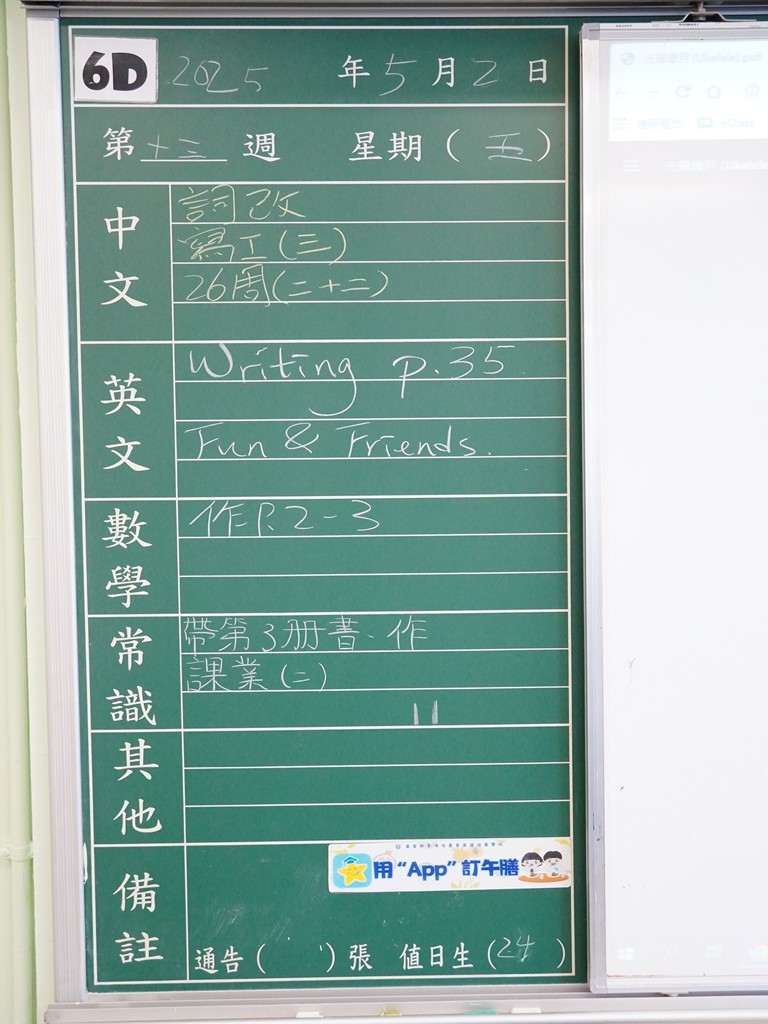 6D 2025 年 5 月 2 日
第 十三 週 星期 ( 五 )
中文
詞改
寫工(三)
26周(二十二)
英文
Writing p.35
Fun & Friends.
數學
作P.2-3
常識
帶第3册書、作
課業(二)
其他
備註
用“App”訂午膳
通告 ( ) 張 值日生 (24 )
eClass